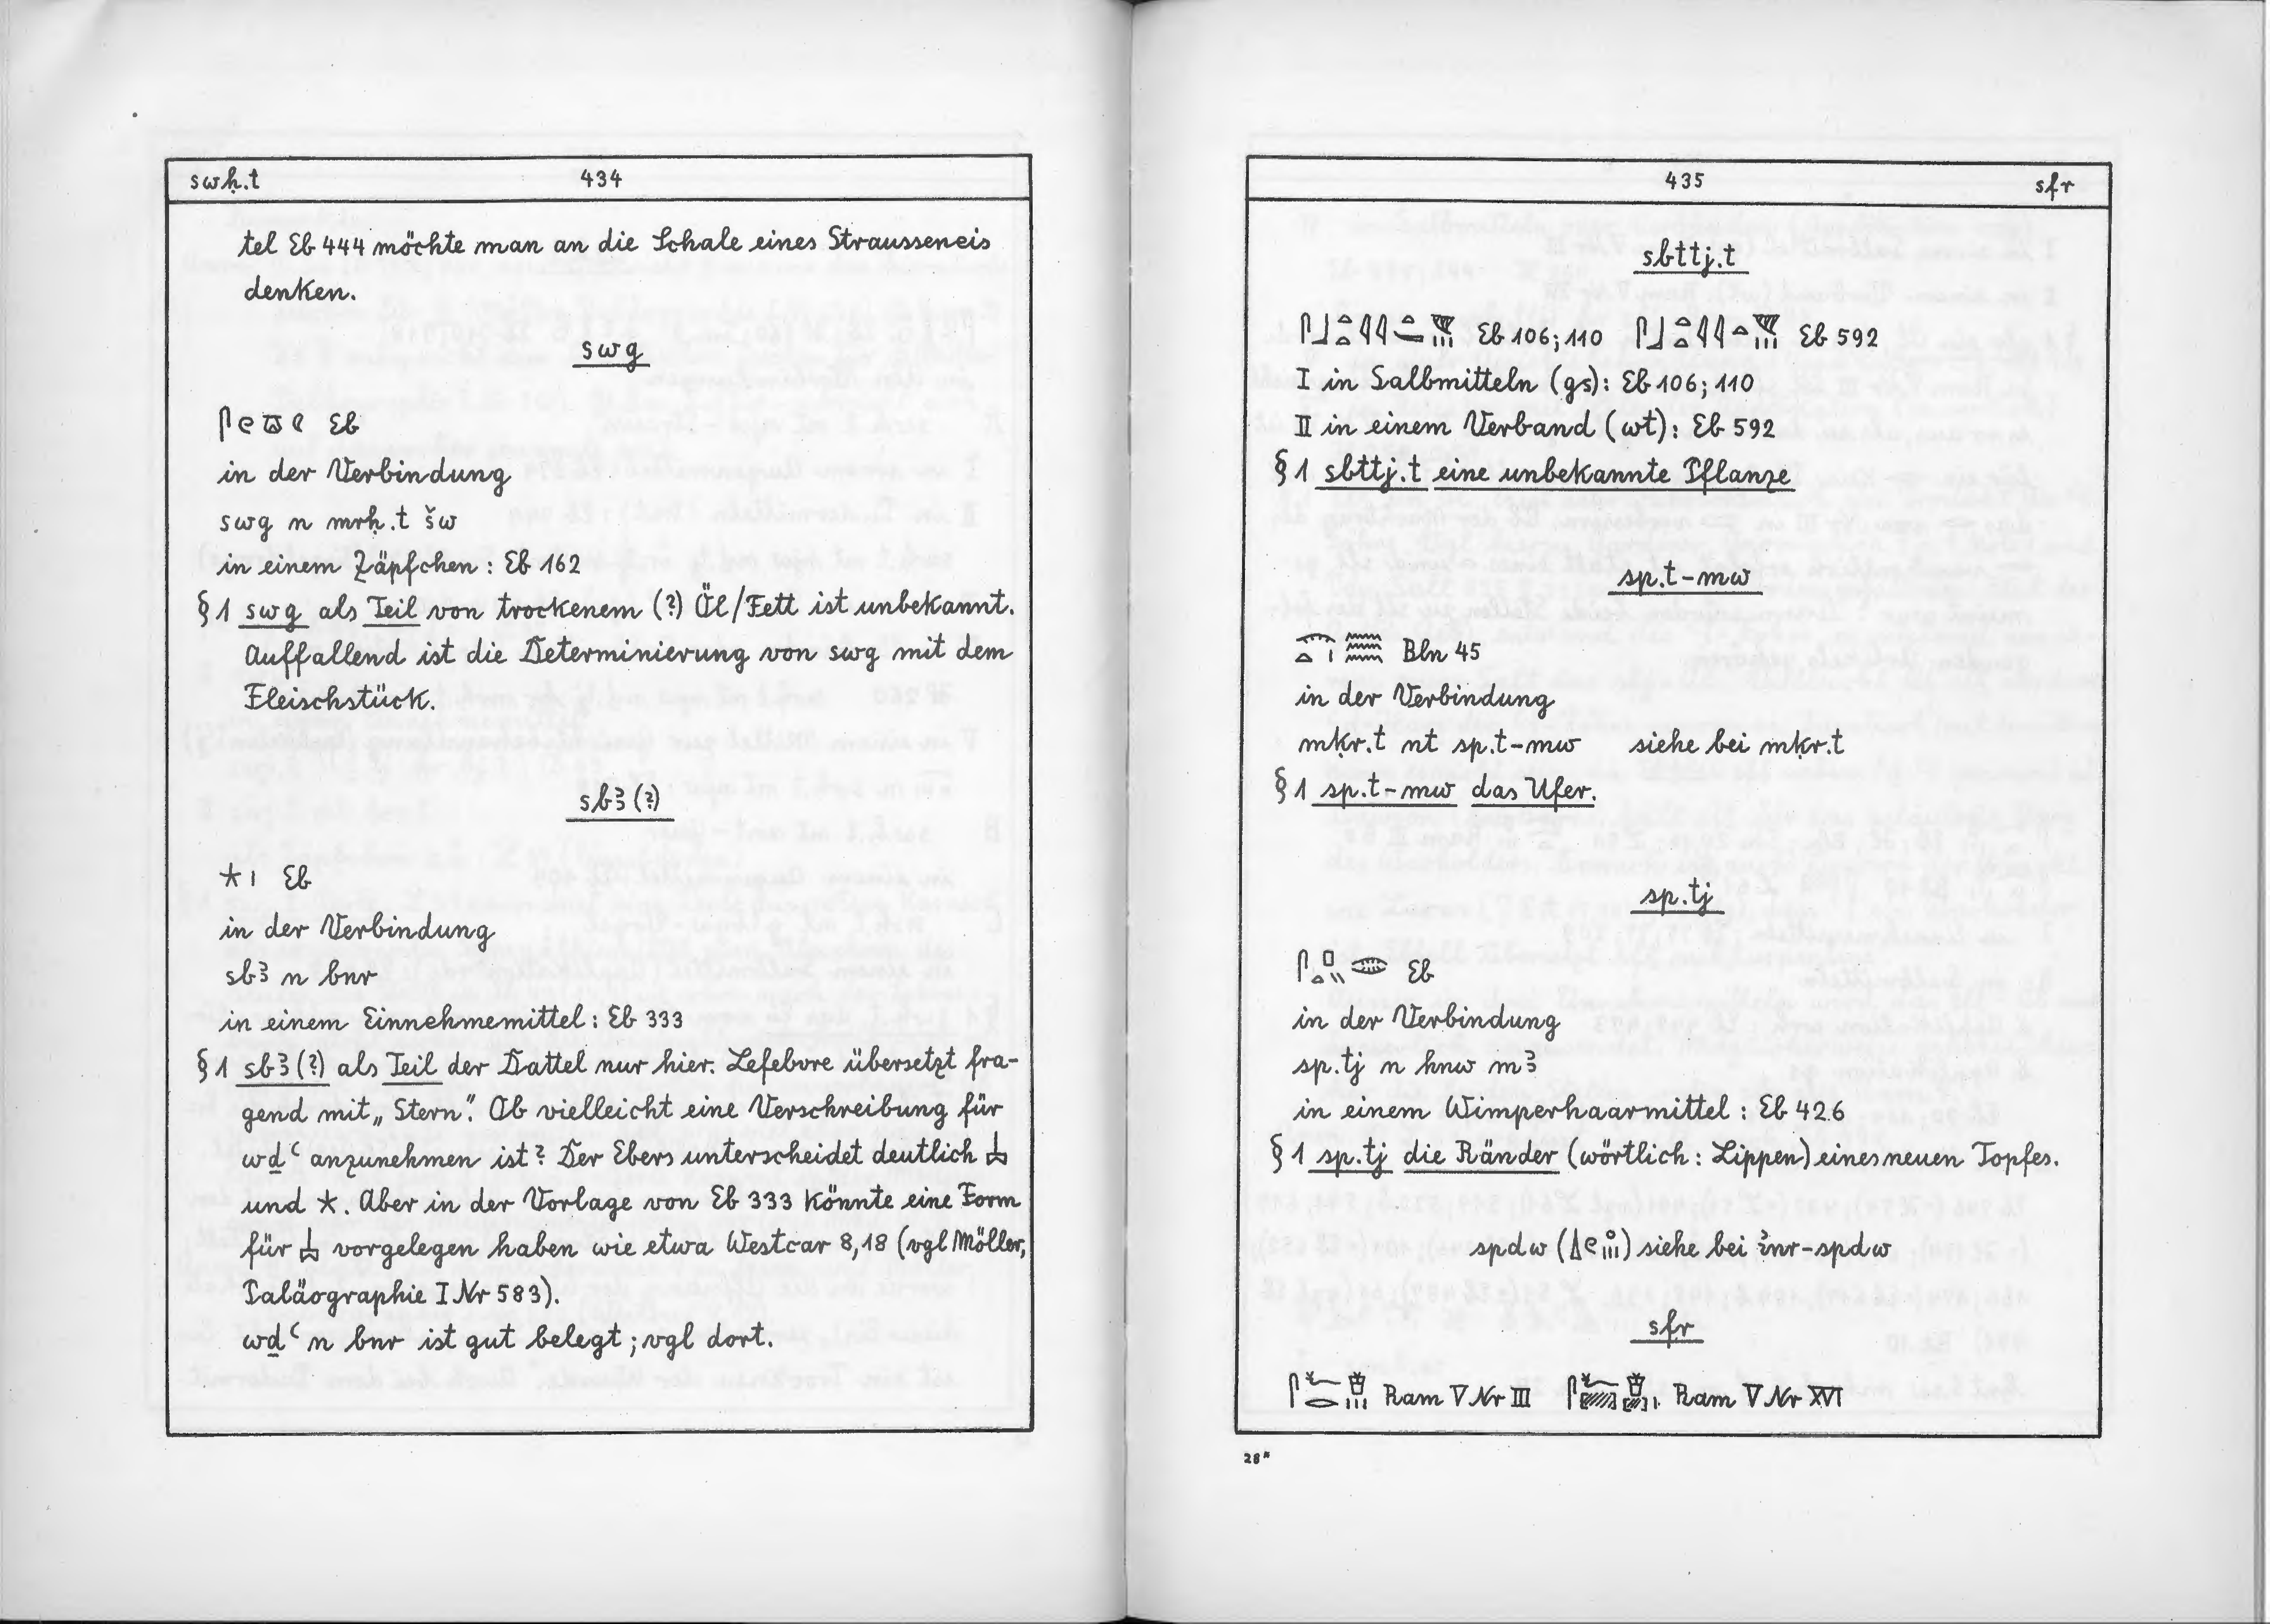 swḥ.t 434
tel Eb 444 möchte man an die Schale eines Strausseneis
denken.
swg
Eb
in der Verbindung
swg n mrḥ.t šw
in einem Zäpfchen : Eb 162
§ 1 swg als Teil von trockenem (?) Öl/Fett ist unbekannt.
Auffallend ist die Determinierung von swg mit dem
Fleischstück.
sbꜣ (?)
𓇼𓏤 Eb
in der Verbindung
sbꜣ n bnr
in einem Einnehmemittel : Eb 333
§ 1 sbꜣ (?) als Teil der Dattel nur hier. Lefebvre übersetzt fra-
gend mit „Stern". Ob vielleicht eine Verschreibung für
wḏꜥ anzunehmen ist? Der Ebers unterscheidet deutlich
und 𓇼. Aber in der Vorlage von Eb 333 könnte eine Form
für vorgelegen haben wie etwa Westcar 8,18 (vgl Möller,
Paläographie I Nr 583).
wḏꜥ n bnr ist gut belegt ; vgl dort.
435 sfr
sbttj.t
Eb 106; 110 Eb 592
I in Salbmitteln (gs) : Eb 106; 110
II in einem Verband (wt) : Eb 592
§ 1 sbttj.t eine unbekannte Pflanze
sp.t-mw
Bln 45
in der Verbindung
mḳr.t nt sp.t-mw siehe bei mḳr.t
§ 1 sp.t-mw das Ufer.
sp.tj
Eb
in der Verbindung
sp.tj n hnw mꜣ
in einem Wimperhaarmittel : Eb 426
§ 1 sp.tj die Ränder (wörtlich : Lippen) eines neuen Topfes.
spdw () siehe bei ỉnr-spdw
sfr
Ram V Nr III Ram V Nr XVI
28*